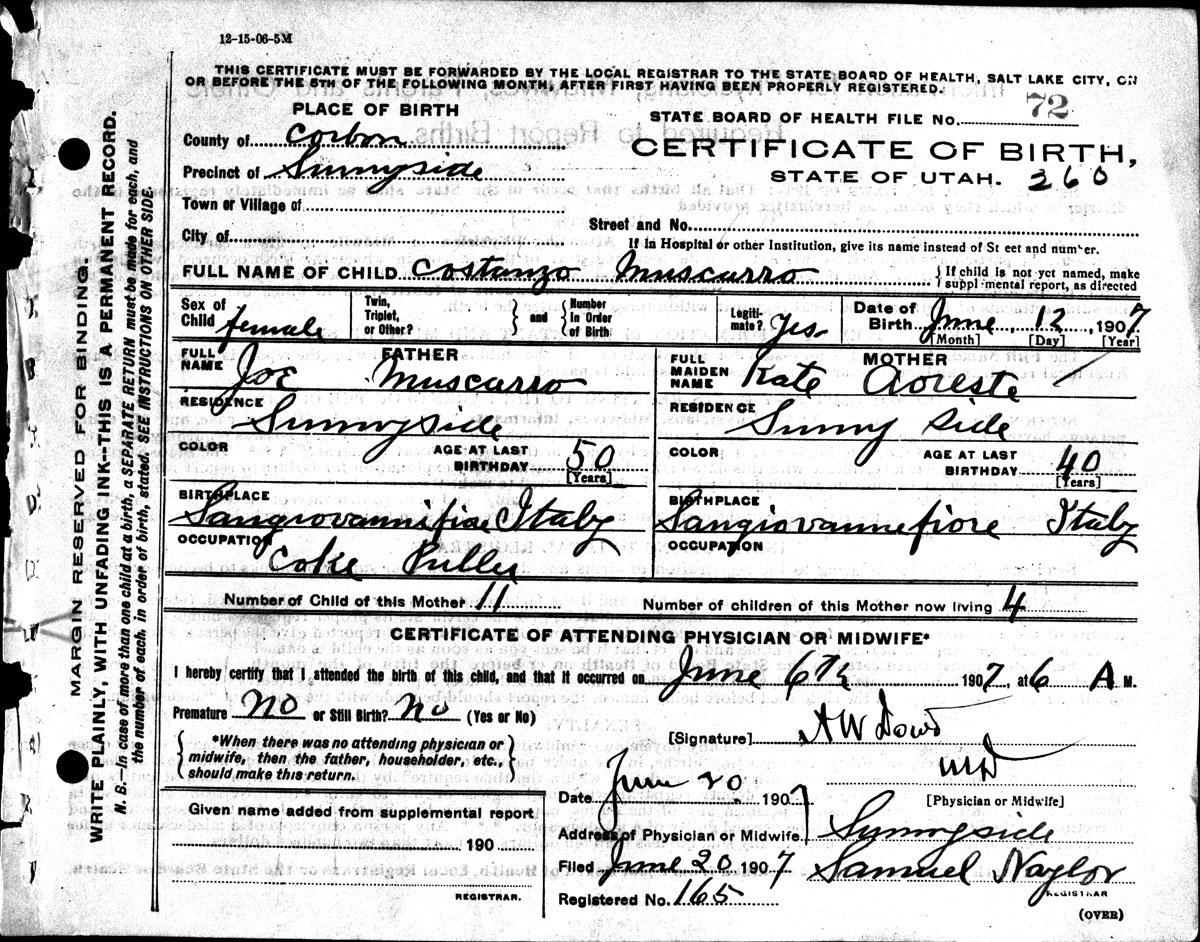 12-15-06-5M
THIS CERTIFICATE MUST BE FORWARDED BY THE LOCAL REGISTRAR TO THE STATE BOARD OF HEALTH, SALT LAKE CITY, ON
OR BEFORE THE 5TH OF THE FOLLOWING MONTH, AFTER FIRST HAVING BEEN PROPERLY REGISTERED.
PLACE OF BIRTH
STATE BOARD OF HEALTH FILE No. 72
County of Corbon
CERTIFICATE OF BIRTH,
Precinct of Sunnyside
STATE OF UTAH. 260
Town or Village of
Street and No.
City of
If in Hospital or other Institution, give its name instead of St eet and num er.
FULL NAME OF CHILD Costanzo Muscurro { If child is not yet named, make
suppl mental report, as directed
Sex of Child female Twin, Triplet, or Other? } and { Number In Order of Birth Legiti- mate? Yes Date of Birth June, 12, 1907
[Month] [Day] [Year]
FATHER
FULL NAME Joe Muscurro
RESIDENCE Sunnyside
COLOR AGE AT LAST BIRTHDAY 50
[Years]
BIRTHPLACE Sangiovannifiore Italy
OCCUPATION Coke Puller
MOTHER
FULL MAIDEN NAME Kate Aoreste
RESIDENCE Sunny side
COLOR AGE AT LAST BIRTHDAY 40
[Years]
BIRTHPLACE Sangiovannefiore Italy
OCCUPATION
Number of Child of this Mother 11 Number of children of this Mother now living 4
CERTIFICATE OF ATTENDING PHYSICIAN OR MIDWIFE*
I hereby certify that I attended the birth of this child, and that it occurred on June 6th 1907, at 6 A M.
Premature No or Still Birth? No (Yes or No)
[Signature] A W Dowd
*When there was no attending physician or
midwife, then the father, householder, etc.,
should make this return.
MD
[Physician or Midwife]
Date June 20 190
Given name added from supplemental report
190
REGISTRAR.
Address of Physician or Midwife Sunnyside
Filed June 20 1907 Samuel Naylor
REGISTRAR
Registered No. 165
(OVER)
MARGIN RESERVED FOR BINDING.
WRITE PLAINLY, WITH UNFADING INK—THIS IS A PERMANENT RECORD.
N. B.—In case of more than one child at a birth, a SEPARATE RETURN must be made for each, and
the number of each, in order of birth, stated. SEE INSTRUCTIONS ON OTHER SIDE.